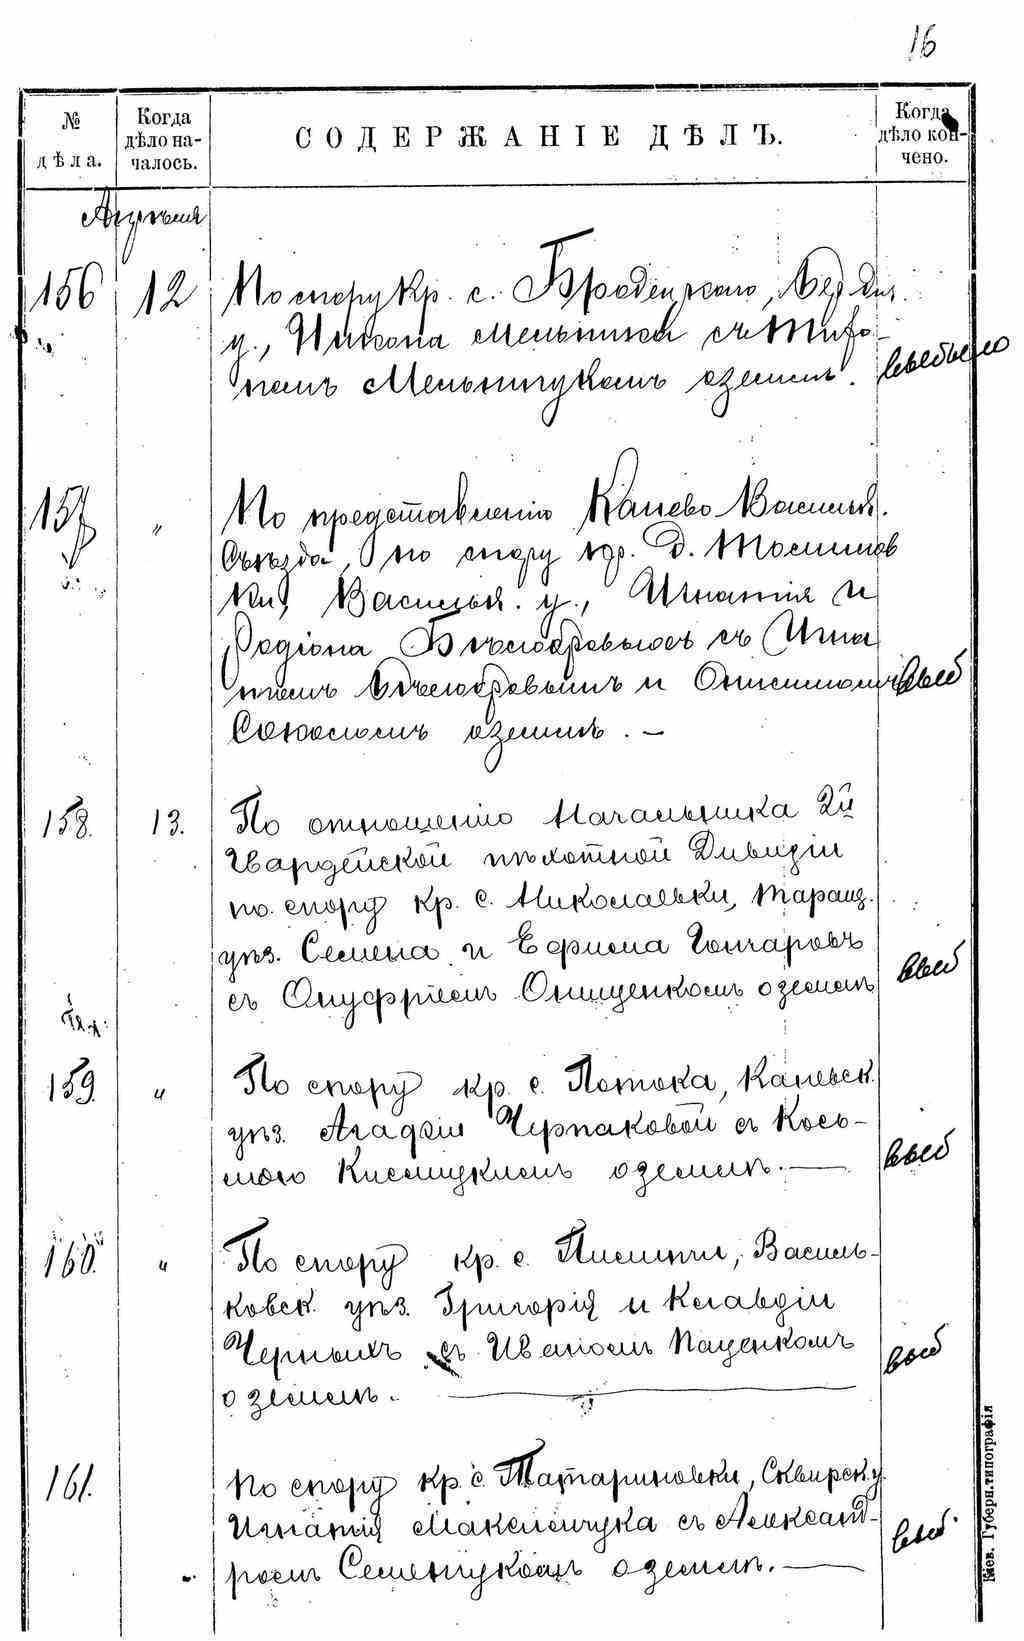 16
№ дѣла.
Когда дѣло началось.
СОДЕРЖАНІЕ ДѢЛЪ.
Когда дѣло кончено.
Апрѣля
156 12 По спору кр. с. Бродецкаго, Бердич.
у., Никона Мельника съ Тифо-
номъ Мельничукомъ о землѣ. выбыло
157 " По представленію Канево-Васильк.
Съѣзда, по спору кр. д.
ки, Васильк. у., Игнатія и
Родіона Бѣлобровыхъ съ Игна
тіемъ Бѣлобровымъ и Онисимомъ выб
Соколомъ о землѣ. —
158. 13. По отношенію Начальника 2й
Гвардейской пѣхотной Дивизіи
по спору кр. с. Николаевки, Таращ.
уѣз. Семена и Ефима Гончаровъ
съ Онуфріемъ Онищенкомъ о землѣ выб
159. " По спору кр. с. Потока, Каневск.
уѣз. Агафіи Черпаковой съ Кось-
мою Кислицкимъ о землѣ. — выб
160. " По спору кр. с. Писчики, Василь-
ковск. уѣз. Григорія и Клавдіи
Черныхъ съ Иваномъ Паценкомъ выб
о землѣ. —
161. По спору кр. с. Татариновки, Сквирск. у.
Игнатія Максимчука съ Александ-
ромъ Семенчукомъ о землѣ. — выб.
Кіев. Губерн. типографія